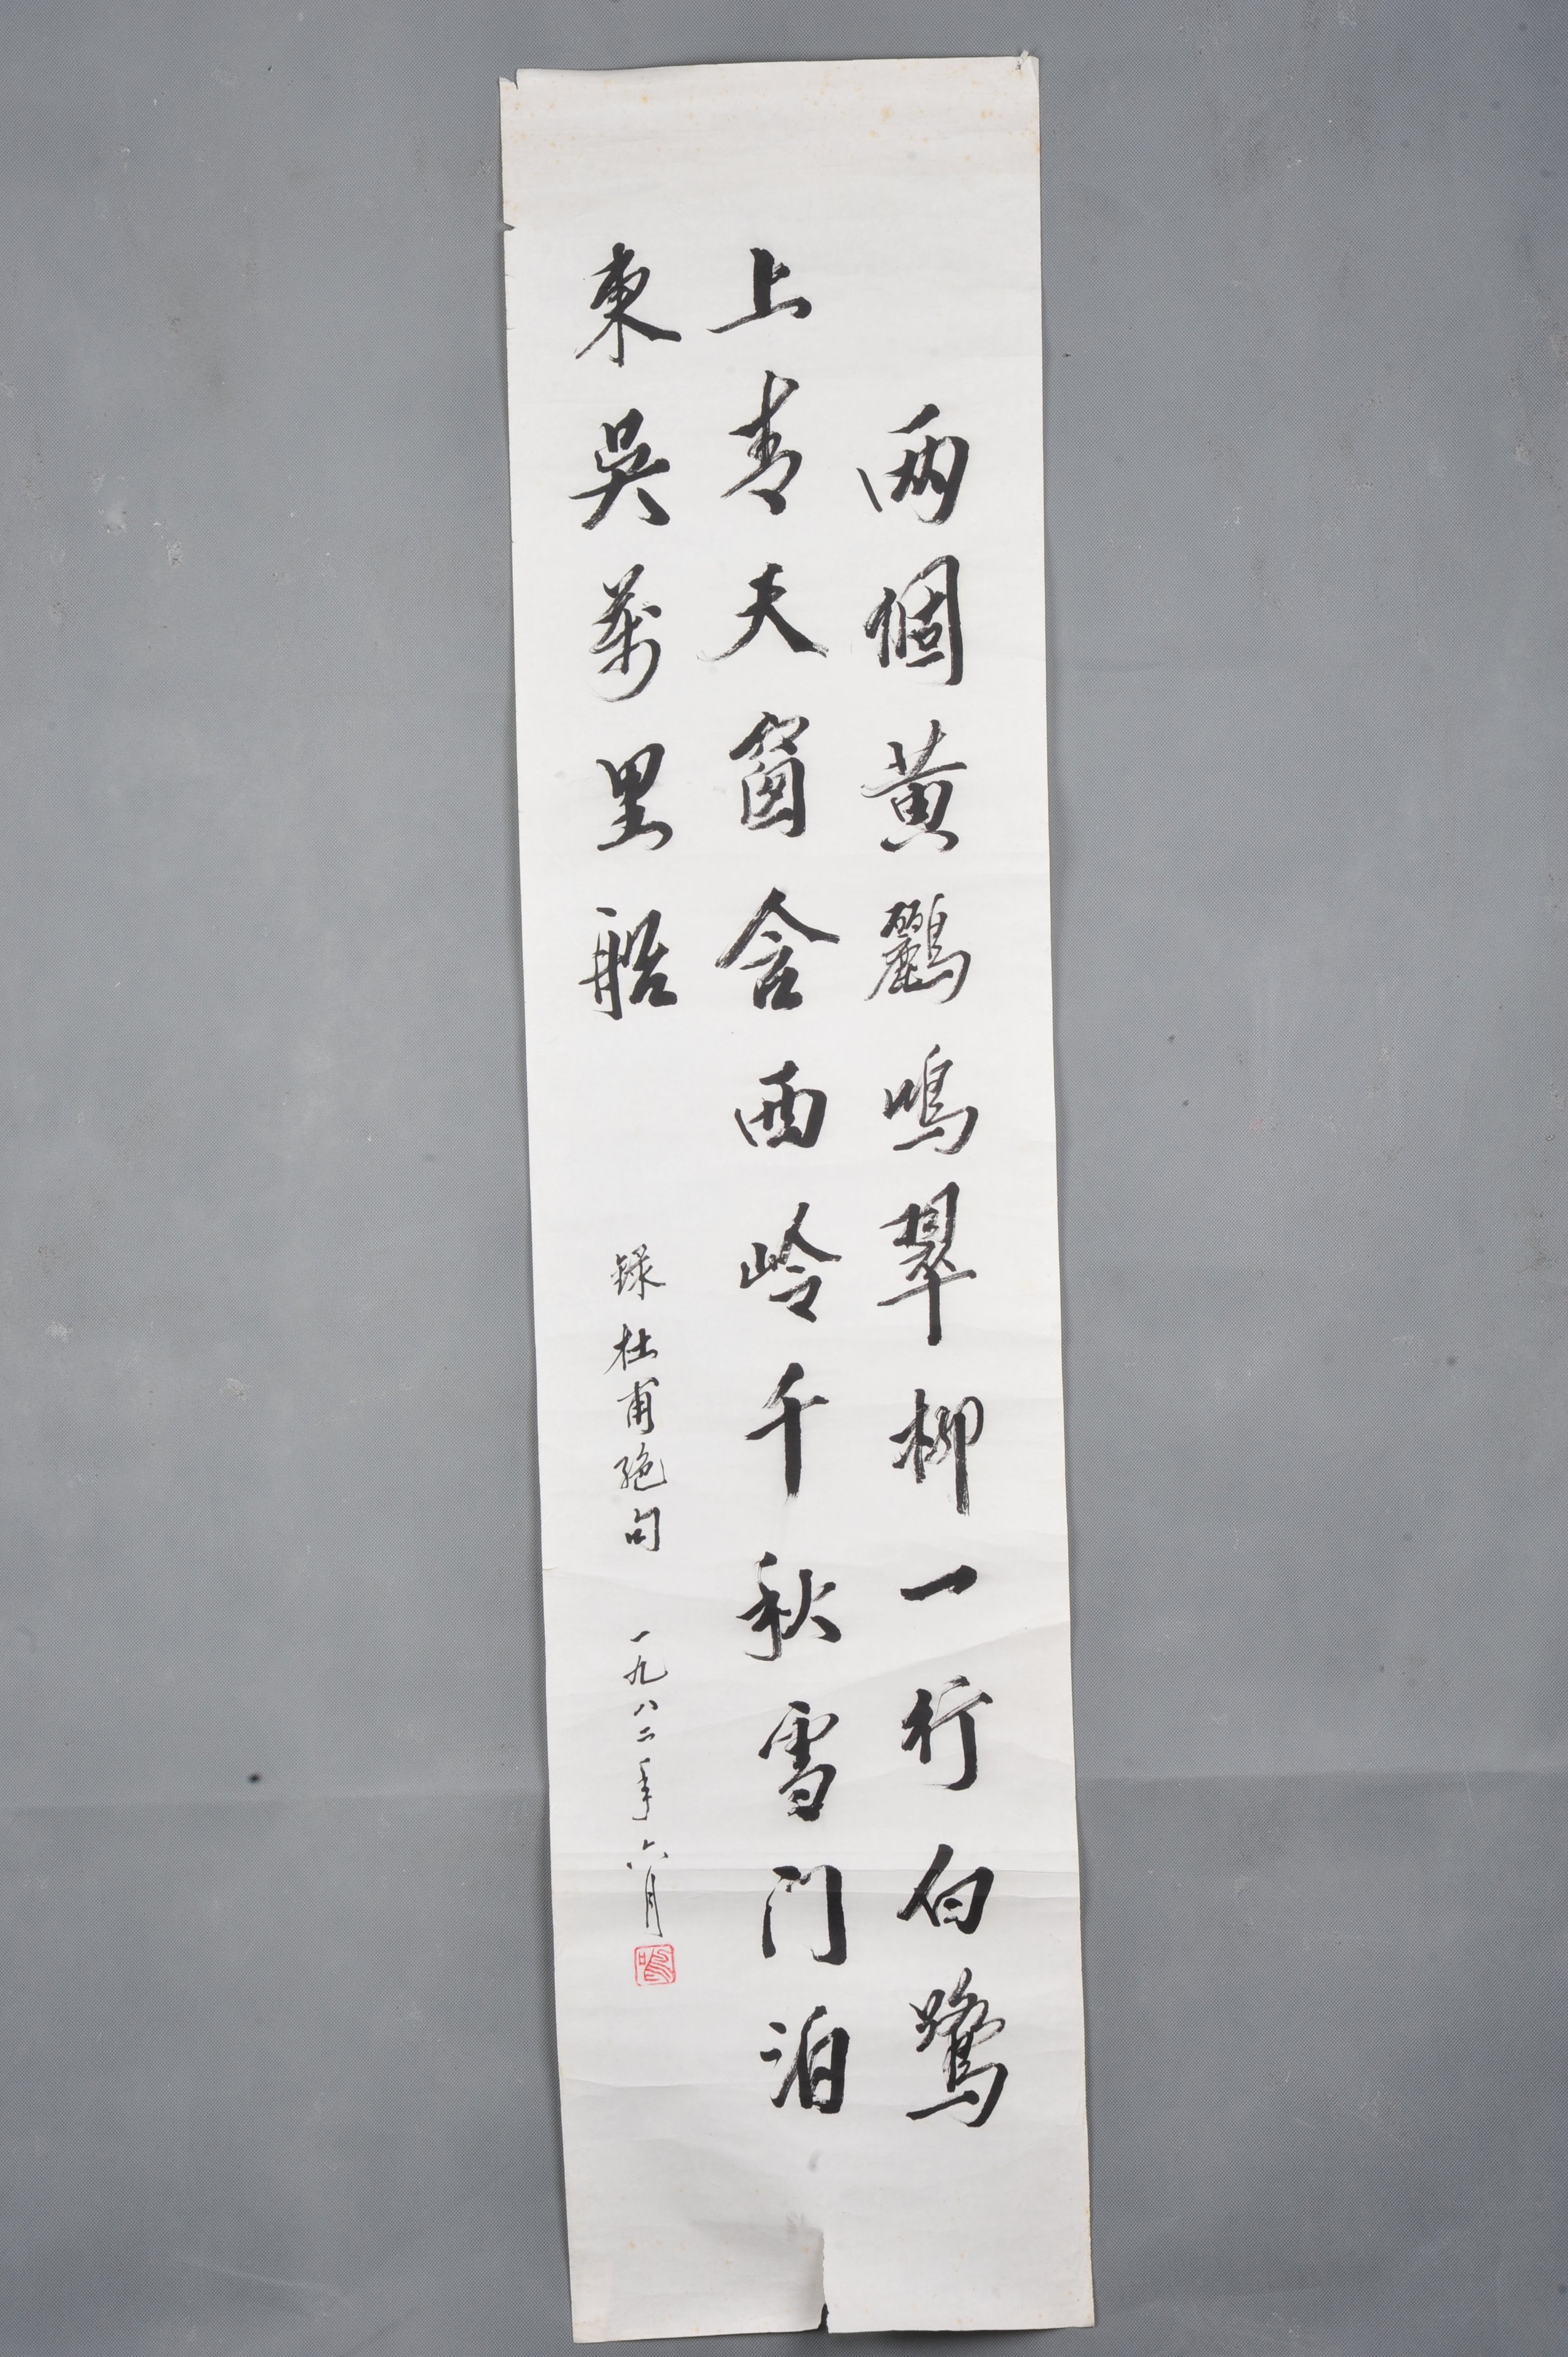 两個黄鸝鳴翠柳一行白鷺
上青天窗含西岭千秋雪门泊
東吳萬里船
録杜甫絶句 一九八二年六月
鳴